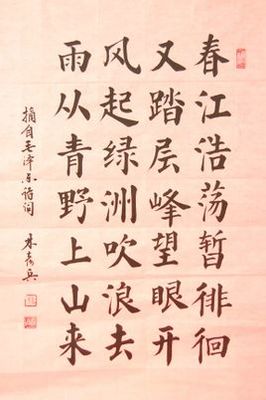 春江浩荡暂徘徊
又踏层峰望眼开
风起绿洲吹浪去
雨从青野上山来
摘自毛泽东诗词